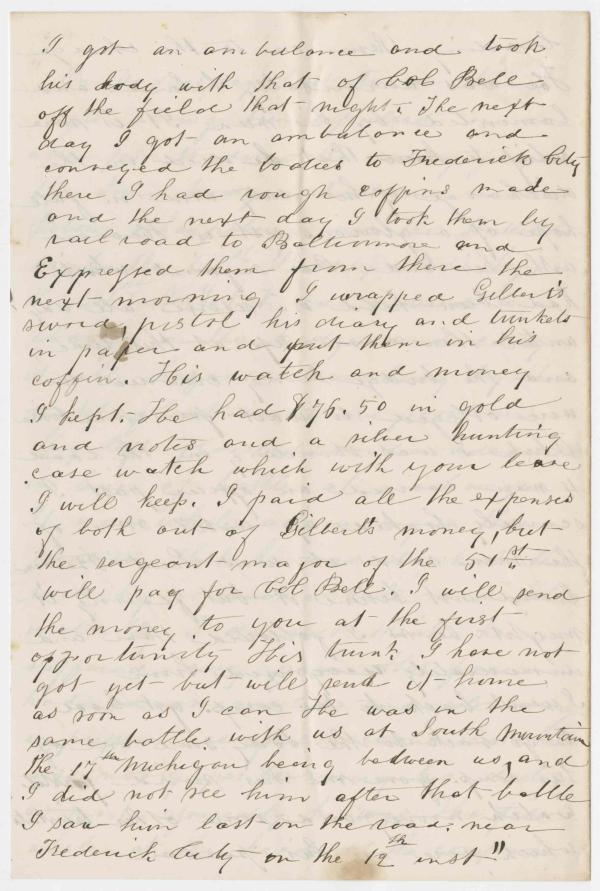 I got an ambulance and took
his body with that of Col Bell
off the field that night. The next
day I got an ambulance and
conveyed the bodies to Frederick City
there I had rough coffins made
and the next day I took them by
rail road to Baltimore and
Expressed them from there the
next morning I wrapped Gilbert's
sword, pistol his diary and trinkets
in paper and put them in his
coffin. His watch and money
I kept. He had $76.50 in gold
and notes and a silver hunting
case watch which with your leave
I will keep. I paid all the expenses
of both out of Gilbert's money, but
the sergeant major of the 51st
will pay for Col Bell. I will send
the money to you at the first
opportunity His trunk I have not
got yet but will send it home
as soon as I can He was in the
same battle with us at South Mountain
the 17th Michigan being between us, and
I did not see him after that battle
I saw him last on the road near
Frederick City on the 12th inst"